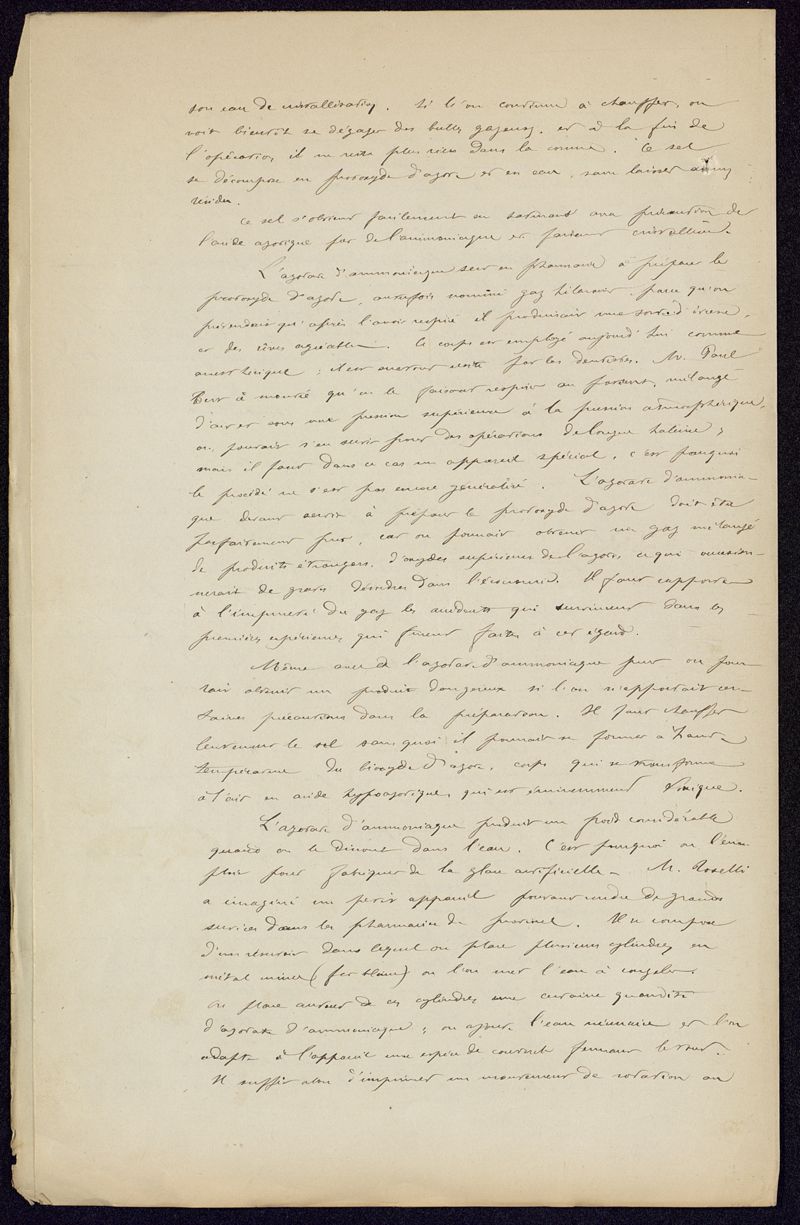 son eau de cristallisation. Si l'on continue à chauffer, on
voit bientôt se dégager des bulles gazeuses, et à la fin de
l'opération il ne reste plus rien dans la cornue. Ce sel
se décompose en protoxyde d'azote et en eau, sans laisser aucun
résidu.
Ce sel s'obtient facilement en saturant avec précaution de
l'acide azotique par de l'ammoniaque et faisant cristalliser.
L'azotate d'ammoniaque sert en pharmacie à préparer le
protoxyde d'azote, autrefois nommé gaz hilarant parce qu'on
prétendait qu'après l'avoir respiré il produisait une sorte d'ivresse
et des rêves agréables. Ce corps est employé aujourd'hui comme
anesthésique ; il est surtout usité par les dentistes. M. Paul
Bert a montré qu'en le faisant respirer au patient, mélangé
d'air et sous une pression supérieure à la pression atmosphérique,
on pouvait s'en servir pour des opérations de longue haleine ;
mais il faut dans ce cas un appareil spécial, c'est pourquoi
le procédé ne s'est pas encore généralisé. L'azotate d'ammonia-
que devant servir à préparer le protoxyde d'azote doit être
parfaitement pur, car on pourrait obtenir un gaz mélangé
de produits étrangers, d'oxydes supérieurs de l'azote, ce qui occasion-
nerait de graves désordres dans l'économie. Il faut rapporter
à l'impureté du gaz les accidents qui survinrent dans les
premières expériences qui furent faites à cet égard.
Même avec de l'azotate d'ammoniaque pur on pour-
rait obtenir un produit dangereux si l'on n'apportait cer-
taines précautions dans la préparation. Il faut chauffer
lentement le sel sans quoi il pourrait se former à haute
température du bioxyde d'azote, corps qui se transforme
à l'air en acide hypoazotique, qui est éminemment toxique.
L'azotate d'ammoniaque produit un froid considérable
quand on le dissout dans l'eau. C'est pourquoi on l'em-
ploie pour fabriquer de la glace artificielle. M. Toselli
a imaginé un petit appareil pouvant rendre de grands
services dans les pharmacies de province. Il se compose
d'un réservoir dans lequel on place plusieurs cylindres en
métal mince (fer blanc) où l'on met l'eau à congeler.
On place autour de ces cylindres une certaine quantité
d'azotate d'ammoniaque ; on ajoute l'eau nécessaire et l'on
adapte à l'appareil une espèce de couvercle fermant le tout.
Il suffit alors d'imprimer un mouvement de rotation au